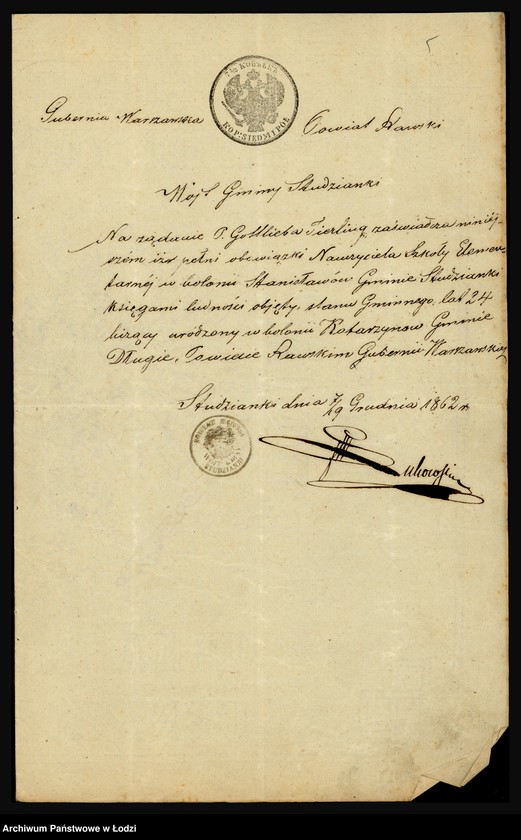 5
7½ KOPIEJKA
KOP: SIEDM I PÓŁ
Gubernia Warszawska Powiat Rawski
Wojt Gminy Studzianki
Na żądanie P. Gottlieba Tierling zaświadcza niniéj
szém iż pełni obowiązki Nauczyciela Szkoły Elemen-
tarnéj w kolonii Stanisławów Gminie Studzianki
księgami ludności objęty, stanu Gminnego, lat 24
liczący urodzony w kolonii Katarzynow Gminie
Długie, Powiecie Rawskim Gubernii Warszawskiéj
Studzianki dnia 7/19 Grudnia 1862 r
POWIAT RAWSKI
WÓJT GMINY
STUDZIANKI
Archiwum Państwowe w Łodzi